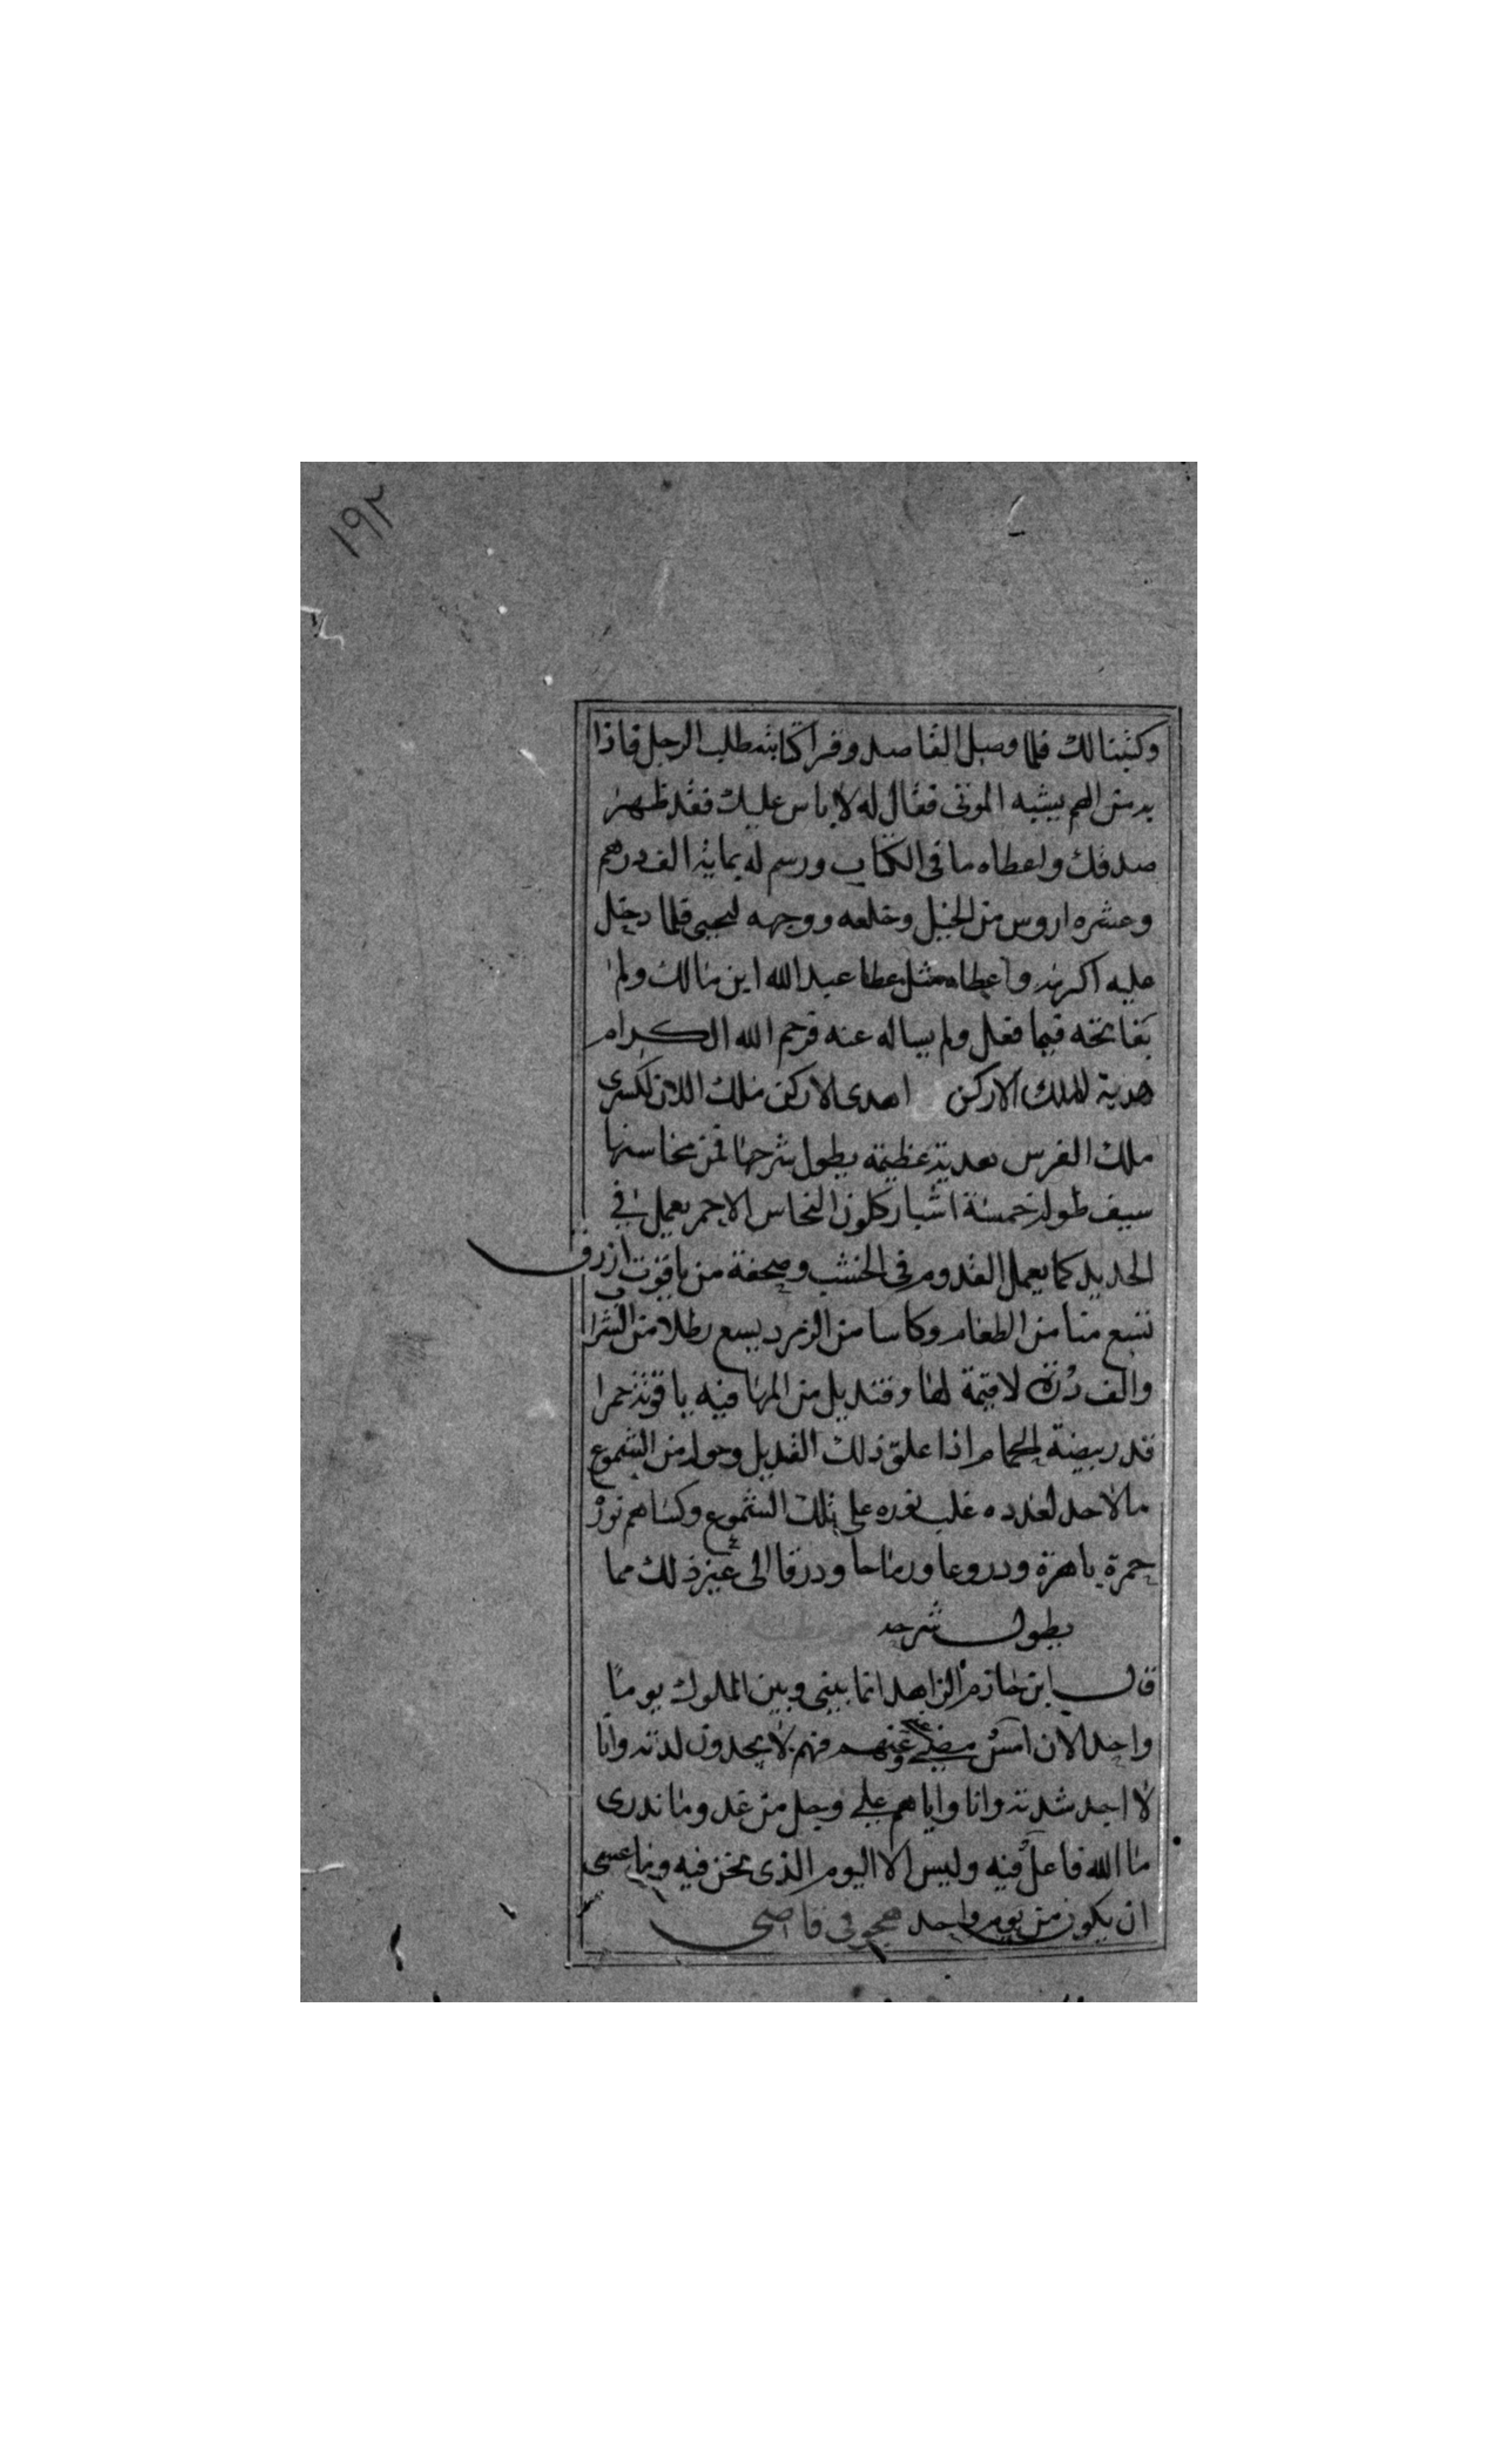 ١٩٢
وكتبنا لك فلما وصل القاصد وقرا كتابته طلب الرجل فاذا
به من الهم يشبه الموتى فقال له لا باس عليك فقد ظهر
صدقك واعطاه ما فى الكتاب ورسم له بماية الف درهم
وعشره اروس من الخيل وخلعه ووجهه ليحيى فلما دخل
عليه اكرمه واعطاه مثل عطا عبد الله ابن مالك ولم
يفاتحه فيما فعل ولم يساله عنه فرحم الله الكرام
هدية الملك الاركن اهدى الاركن ملك اللان لكسرى
ملك الفرس هدية عظيمة يطول شرحها فمن محاسنها
سيف طوله خمسة اشبار كلون النحاس الاحمر يعمل فى
الحديد كما يعمل القدوم فى الخشب وصحفة من ياقوت ازرق
تسع منا من الطعام وكاسا من الزمرد يسع رطلا من الشراب
والف درة لا قيمة لها وقنديل من المها فيه ياقوتة حمرا
قدر بيضة الحمام اذا علق ذلك القنديل وحوله من الشموع
ما لا حد لعدده غلب نوره على تلك الشموع وكساهم نور
حمرة باهرة ودروعا ورماحا ودرقا الى غير ذلك مما
يطول شرحه
قال ابن حازم الزاهد انما بينى وبين الملوك يوما
واحد لان امس مضى عنهم فهم لا يجدون لذته وانا
لا اجد شدته وانا واياهم على وجل من غد وما ندرى
ما الله فاعل فيه وليس الا اليوم الذى نحن فيه وما عسى
ان يكون من يوم واحد